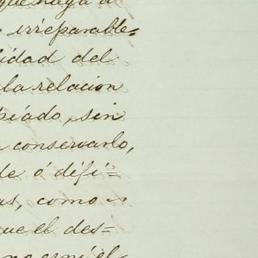 que haga a
irreparable=
lidad del
la relacion
piado, sin
conservarlo,
de ó difi=
as, como
que el des=
no es ni el